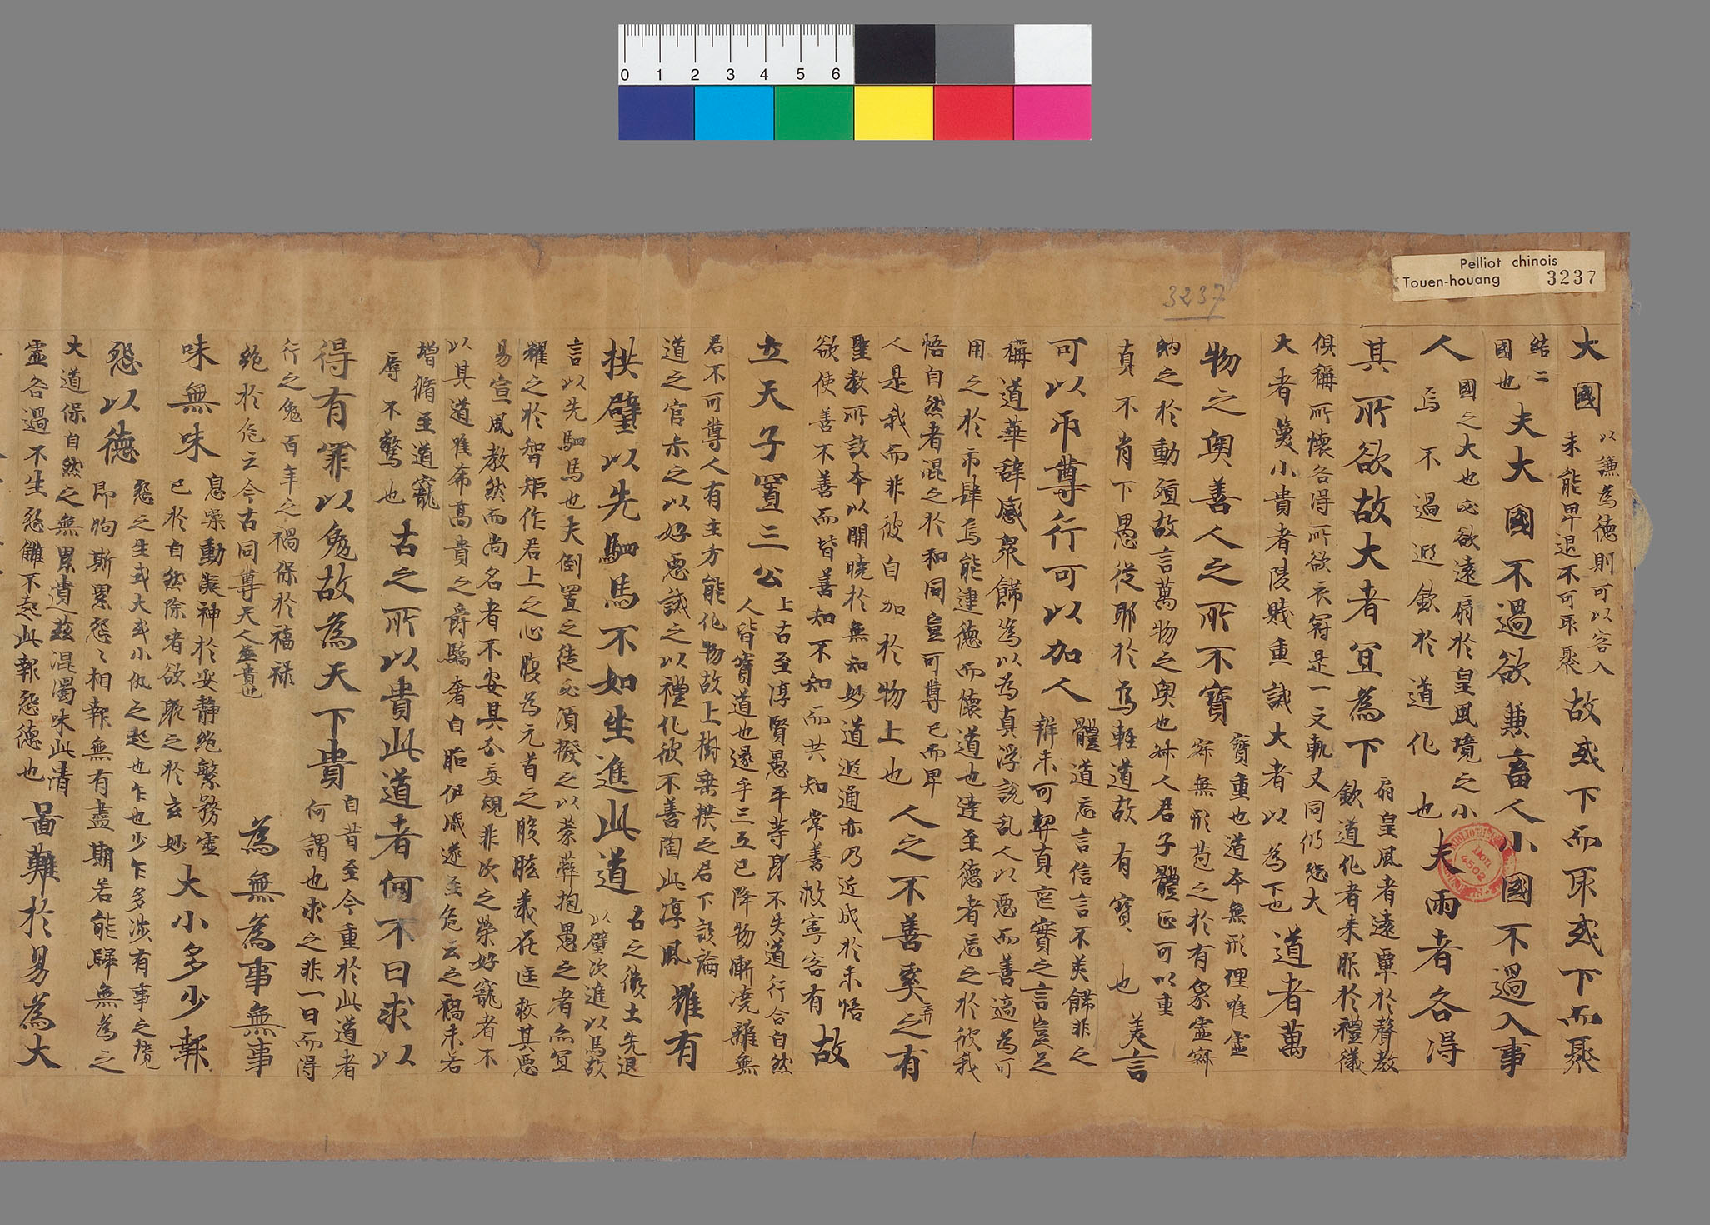 Pelliot chinois
Touen-houang 3237
3237
0 1 2 3 4 5 6
大國
以謙為德則可以容入
未能卑退不可取聚
故或下而取或下而聚
結二
國也
夫大國不過欲兼畜人小國不過入事
人
國之大也必欲遠扇於皇風境之小
烏不過遐欽於道化也
夫兩者各得
其所欲故大者宜為下
扇皇風者遠覃於聲教
欽道化者來服於禮儀
俱稱所懷各得所欲衣冠是一文軌又同仍恐大
大者篾小貴者陵賤重誡大者以為下也
道者萬
物之奧善人之所不寶
寶重也道本無形理唯虛
寂無形苞之於有象靈寂
納之於動殖故言萬物之奧也叶人君子體正可以重
真不肖下愚從耶於焉輕道故有寶也
美言
可以市尊行可以加人
體道忘言信言不美飾非之
辯未可契真寔實之言豈足
稱道華辭感眾飾為以為真浮說亂人以惡而善適為可
用之於市肆烏能連德而懷道也達至德者忘之於彼我
悟自然者混之於和同豈可尊已而卑
人是我而非彼自加於物上也
人之不善奚弃之有
聖教所設本以開曉於無知妙道遐通亦乃近成於未悟
欲使善不善而皆善知不知而共知常善救寄容有
故
立天子置三公
上古至淳賢愚平等身不失道行合自然
人皆寶道也還乎三五已降物漸澆雜無
君不可尊人有主方能化物故上樹垂拱之君下設論
道之官示之以好惡誡之以禮化彼不善陶此淳風
雖有
拱璧以先駟馬不如坐進此道
古之獻土先退
以璧次進以馬故
言以先駟馬也夫倒置之徒必須撥之以蒙弊抱愚之者亦宜
耀之於智炬作君上之心腹為元首之股肱義在匡救其惡
易宣風教然而尚名者不安其分妄規非次之榮好寵者不
以其道唯希高貴之爵驕奢自貽伊戚遂至危亡之禍未若
增脩至道寵
辱不驚也
古之所以貴此道者何不日求以
得有罪以免故為天下貴
自昔至今重於此道者
何謂也求之非一日而得
行之免百年之禍保於福祿
絕於危亡今古同尊天人並貴也
為無為事無事
味無味
息躁動凝神於安靜絕繁務靈
已於自然除嗜欲聚之於玄妙
大小多少報
怨以德
怨之生或大或小仇之起也乍也少乍多涉有事之境
即狥斯累怨々相報無有盡期若能歸無為之
大道保自然之無累遺茲混濁味此清
虛各過不生怨讎不起此報怨德也
啚難於易為大